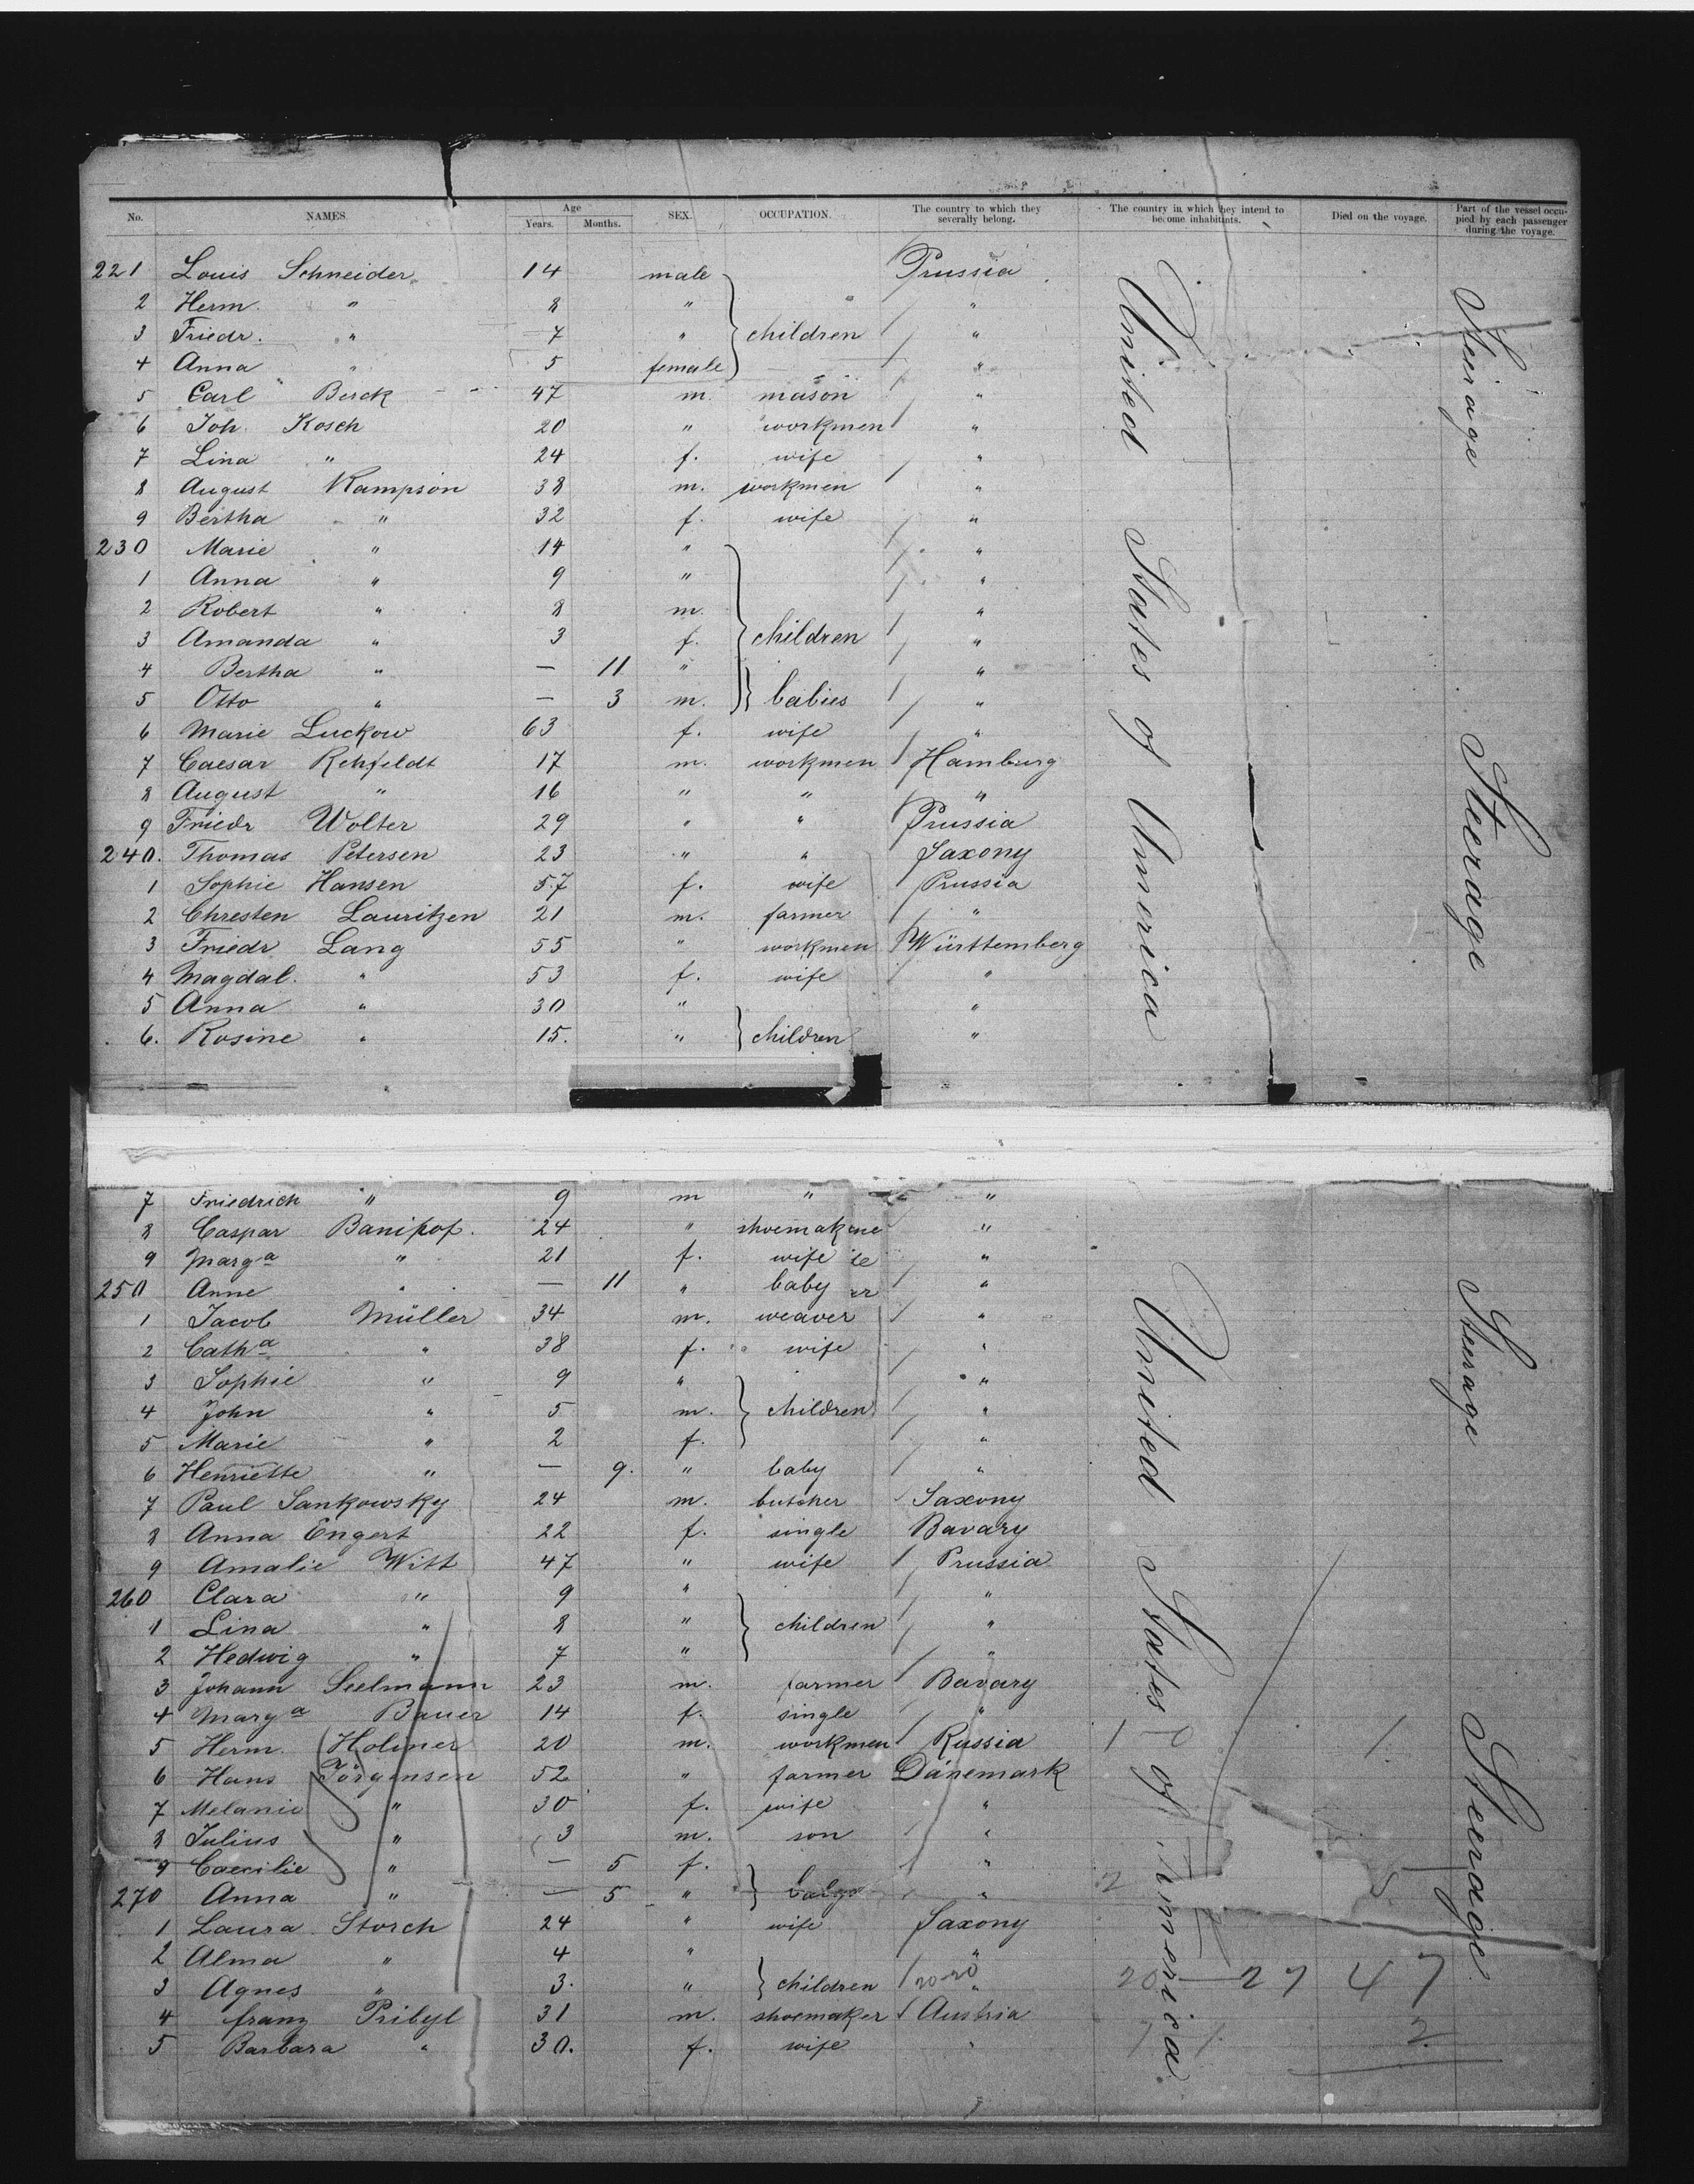 No. NAMES. Age Years. Months. SEX. OCCUPATION. The country to which they severally belong. The country in which they intend to become inhabitants. Died on the voyage. Part of the vessel occupied by each passenger during the voyage.
221 Louis Schneider 14 male Prussia
2 Herm. " 8 " " "
3 Friedr. " 7 " children "
4 Anna " 5 female "
5 Carl Berck 47 m. mason "
6 Joh. Kosch 20 " workmen "
7 Lina " 24 f. wife "
8 August Kampson 38 m. workmen "
9 Bertha " 32 f. wife "
230 Marie " 14 " "
1 Anna " 9 " "
2 Robert " 8 m. "
3 Amanda " 3 f. children "
4 Bertha " — 11 " "
5 Otto " — 3 m. babies "
6 Marie Luckow 63 f. wife "
7 Caesar Rehfeldt 17 m. workmen Hamburg
8 August " 16 " " "
9 Friedr Wolter 29 " " Prussia
240. Thomas Petersen 23 " " Saxony
1 Sophie Hansen 57 f. wife Prussia
2 Chresten Lauritzen 21 m. farmer "
3 Friedr Lang 55 " workmen Württemberg
4 Magdal. " 53 f. wife "
5 Anna " 30 " "
6. Rosine " 15. " children "
United States of America
Steirage
Steerage
7 Friedrich " 9 m " "
8 Caspar 24 " "
9 Marga " 21 f. wife "
250 Anne " — 11 " baby "
1 Jacob Müller 34 m. weaver "
2 Catha " 38 f. wife "
3 Sophie " 9 " "
4 John " 5 m. children "
5 Marie " 2 f. "
6 Henriette " — 9. " baby "
7 Paul Sankowsky 24 m. butcher Saxony
8 Anna Engert 22 f. single Bavary
9 Amalie Witt 47 " wife Prussia
260 Clara " 9 " "
1 Lina " 8 " children "
2 Hedwig " 7 " "
3 Johann Seelmann 23 m. farmer Bavary
4 Marga Bauer 14 f. single "
5 Herm. Holmer 20 m. workmen Russia
6 Hans Jörgensen 52 " farmer Dänemark
7 Melanie " 30 f. wife "
8 Julius " 3 m. son "
9 Caecilie " — 5 f. "
270 Anna " — 5 " "
1 Laura Storch 24 " wife Saxony
2 Alma " 4 " "
3 Agnes " 3. " children "
4 franz Pribyl 31 m. shoemaker Austria
5 Barbara " 30. f. wife "
United States of America
Steerage
Steerage
20 27 47
2